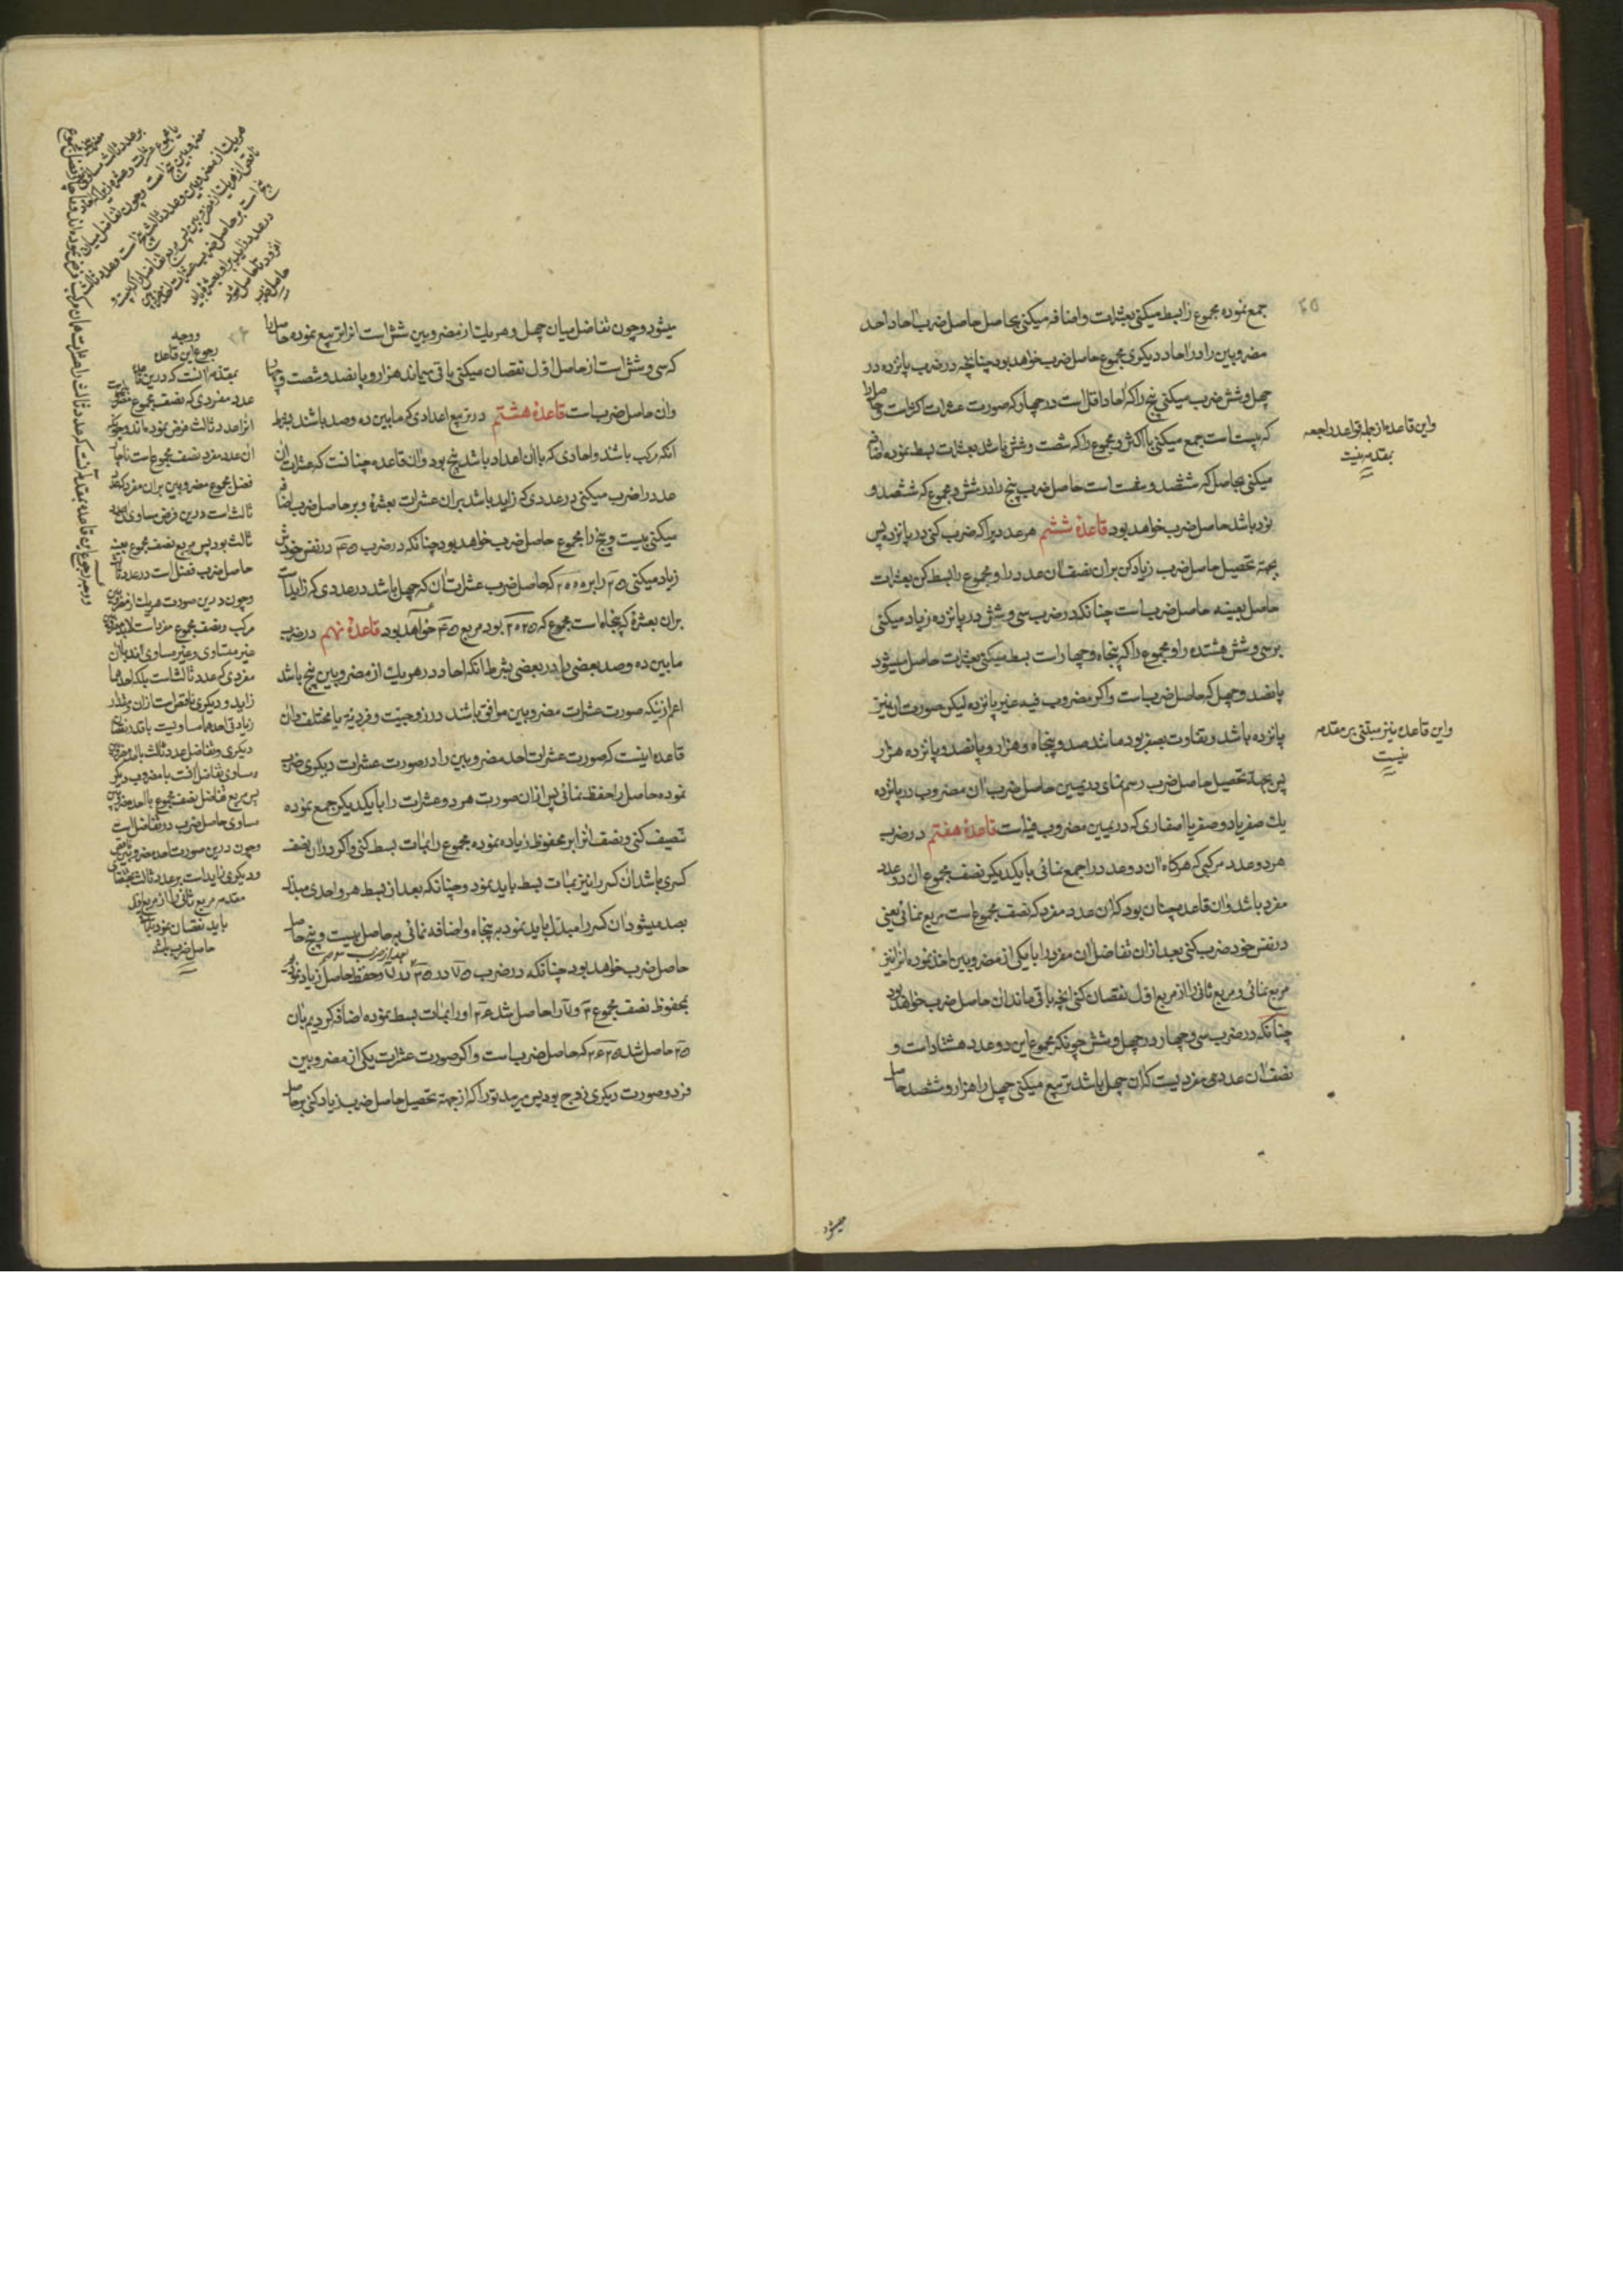 جمع نموده مجموع را بسط میکنی بعشرات و اضافه میکنی بحاصل حاصل ضرب احاد احد
مضروبین را در احاد دیگری مجموع حاصل ضرب خواهد بود چنانچه در ضرب پانزده در
چهل و شش ضرب میکنی پنج را که احاد اقل است در چهار که صورت عشرات اکثر است و حاصل را
که بیست است جمع میکنی با اکثر و مجموع را که شصت و شش باشد بعشرات بسط نموده اضافه
میکنی بحاصل که ششصد و شصت است حاصل ضرب پنج را در شش و مجموع که ششصد و
نود باشد حاصل ضرب خواهد بود قاعدهٔ ششم هر عددیرا که ضرب کنی در پانزده پس
بجهة تحصیل حاصل ضرب زیاد کن بران نصف آن عدد را و مجموع را بسط کن بعشرات
حاصل بعینه حاصل ضرب است چنانکه در ضرب سی و شش در پانزده زیاد میکنی
بر سی و شش هشتده را و مجموع را که پنجاه و چهار است بسط میکنی بعشرات حاصل میشود
پانصد و چهل که حاصل ضرب است و اگر مضروب فیه غیر پانزده لیکن صورت آن نیز
پانزده باشد و تفاوت بصفر بود مانند صد و پنجاه و هزار و پانصد و پانزده هزار
پس بجهة تحصیل حاصل ضرب رسم نمای در یمین حاصل ضرب آن مضروب در پانزده
یك صفر یا دو صفر یا اصفاری که در یمین مضروب فیه است قاعدهٔ هفتم در ضرب
هر دو عدد مرکبی که هرگاه آن دو عدد را جمع نمائی با یکدیگر نصف مجموع آن دو عدد
مفرد باشد و آن قاعده چنان بود که آن عدد مفرد که نصف مجموع است مربع نمائی یعنی
در نفس خود ضرب کنی بعد از آن تفاضل آن مفرد را با یکی از مضروبین اخذ نموده انرا نیز
مربع نمائی و مربع ثانی را از مربع اول نقصان کنی انچه باقی ماند آن حاصل ضرب خواهد بود
چنانکه در ضرب سی و چهار در چهل و شش چونکه مجموع این دو عدد هشتاد است و
نصف آن عددی مفردیست که آن چهل باشد تربیع میکنی چهل را هزار و ششصد حاصل
میشود
واین قاعده از جمله قواعد راجعه
بمقدمه نیست
واین قاعده نیز مبتنی بر مقدمه
نیست
میشود و چون تفاضل میان چهل و هر یك از مضروبین شش است انرا تربیع نموده حاصل را
که سی و شش است از حاصل اول نقصان میکنی باقی میماند هزار و پانصد و شصت و چهار
و آن حاصل ضرب است قاعدهٔ هشتم در تربیع اعدادی که ما بین ده و صد باشند بشرط
آنکه مرکب باشد و احادی که با آن اعداد باشد پنج بود و آن قاعده چنانست که عشرات آن
عدد را ضرب میکنی در عددی که زاید باشد بران عشرات بعشرهٔ و بر حاصل ضرب اضافه
میکنی بیست و پنج را مجموع حاصل ضرب خواهد بود چنانکه در ضرب ۴۵ در نفس خودش
زیاد میکنی ۲۵ را بر ۲۰۰۰ که حاصل ضرب عشرات آن که چهل باشد در عددی که زاید است
بران بعشرهٔ که پنجاه است مجموع که ۲۰۲۵ بود مربع ۴۵ خواهد بود قاعدهٔ نهم در ضرب
مابین ده و صد بعضی را در بعضی بشرط آنکه احاد در هر یك از مضروبین پنج باشد
اعم از اینکه صورت عشرات مضروبین موافق باشند در زوجیت و فردیة یا مختلف و آن
قاعده اینست که صورت عشرات احد مضروبین را در صورت عشرات دیگری ضرب
نموده حاصل را حفظ نمائی پس از آن صورت هر دو عشرات را با یکدیگر جمع نموده
تنصیف کنی و نصف انرا بر محفوظ زیاده نموده مجموع را بمأت بسط کنی و اگر در آن نصف
کسری باشد آن کسر را نیز بمأت بسط باید نمود و چنانکه بعد از بسط هر واحدی مبدل
بصد میشود آن کسر را مبدل باید نمود به پنجاه و اضافه نمائی بر حاصل بیست و پنج حاصل
حاصل ضرب خواهد بود چنانکه در ضرب ۷۵ در ۳۵ بعد از ضرب ۳ در ۷ و حفظ حاصل زیاد نمودیم
بمحفوظ نصف مجموع ۳ و ۷ را حاصل شد ۲۶ او را بمأت بسط نموده اضافه کردیم بآن
۲۵ حاصل شد ۲۶۲۵ که حاصل ضرب است و اگر صورت عشرات یکی از مضروبین
فرد و صورت دیگری زوج بود پس میرسد تو را که از جهة تحصیل حاصل ضرب زیاد کنی بر حاصل
ووجه
رجوع این قاعده
بمقدمه آنست که درین قاعده
عدد مفردی که نصف مجموع مضروبین است
انرا عدد ثالث فرض نموده‌اند و چون
آن عدد مفرد نصف مجموع است
فضل مجموع مضروبین بران مفرد که عدد
ثالث است درین فرض مساوی عدد
ثالث بود پس مربع نصف مجموع بعینه
حاصل ضرب فضل است در عدد ثالث
و چون درین صورت هر یك از مضروبین
مرکب و نصف مجموع مفرد است
غیر متساوی و غیر مساوی اند بآن
مفردی که عدد ثالث است بلکه احدهما
زاید و دیگری ناقص است ازان و مقدار
زیادتی احدهما مساویست با قدر نقصان
دیگری و تفاضل عدد ثالث با احد مضروبین
مساوی تفاضل آنست با مضروب دیگر
پس مربع تفاضل نصف مجموع با احد مضروبین
مساوی حاصل ضرب دو تفاضل است
و چون درین صورت احد مضروبین ناقص
و دیگری زاید است بر عدد ثالث بمقتضای
مقدمه مربع ثانی را از مربع اول
باید نقصان نمود تا باقی
حاصل ضرب باشد